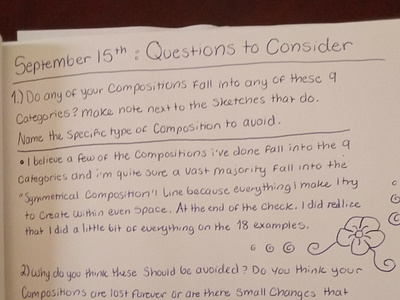 September 15th : Questions to Consider
1.) Do any of your Compositions fall into any of these 9
Categories? make note next to the sketches that do.
Name the Specific type of Composition to avoid.
• I believe a few of the Compositions i've done fall into the 9
Categories and i'm quite sure a vast majority fall into the
"Symmetrical Composition" Line because everything I make I try
to Create within even space. At the end of the check, I did realize
that I did a little bit of everything on the 18 examples.
2) Why do you think these Should be avoided? Do you think your
Compositions are lost forever or are there Small Changes that